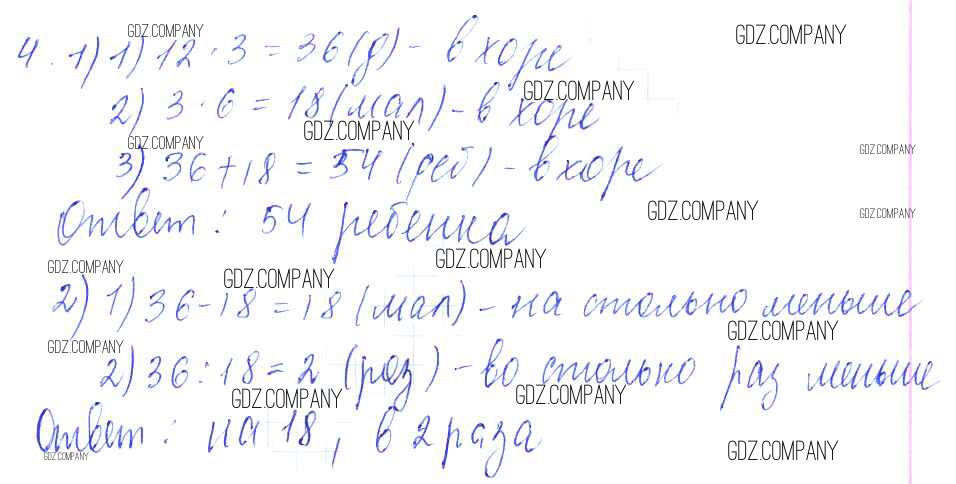 GDZ.COMPANY
GDZ.COMPANY
4. 1) 1) 12 · 3 = 36 (д) - в хоре
GDZ.COMPANY
2) 3 · 6 = 18 (мал) - в хоре
GDZ.COMPANY
GDZ.COMPANY
GDZ.COMPANY
3) 36 + 18 = 54 (реб) - в хоре
GDZ.COMPANY
GDZ.COMPANY
Ответ: 54 ребенка
GDZ.COMPANY
GDZ.COMPANY
GDZ.COMPANY
2) 1) 36 - 18 = 18 (мал) - на столько меньше
GDZ.COMPANY
GDZ.COMPANY
2) 36 : 18 = 2 (раз) - во столько раз меньше
GDZ.COMPANY
GDZ.COMPANY
Ответ: на 18, в 2 раза
GDZ.COMPANY
GDZ.COMPANY